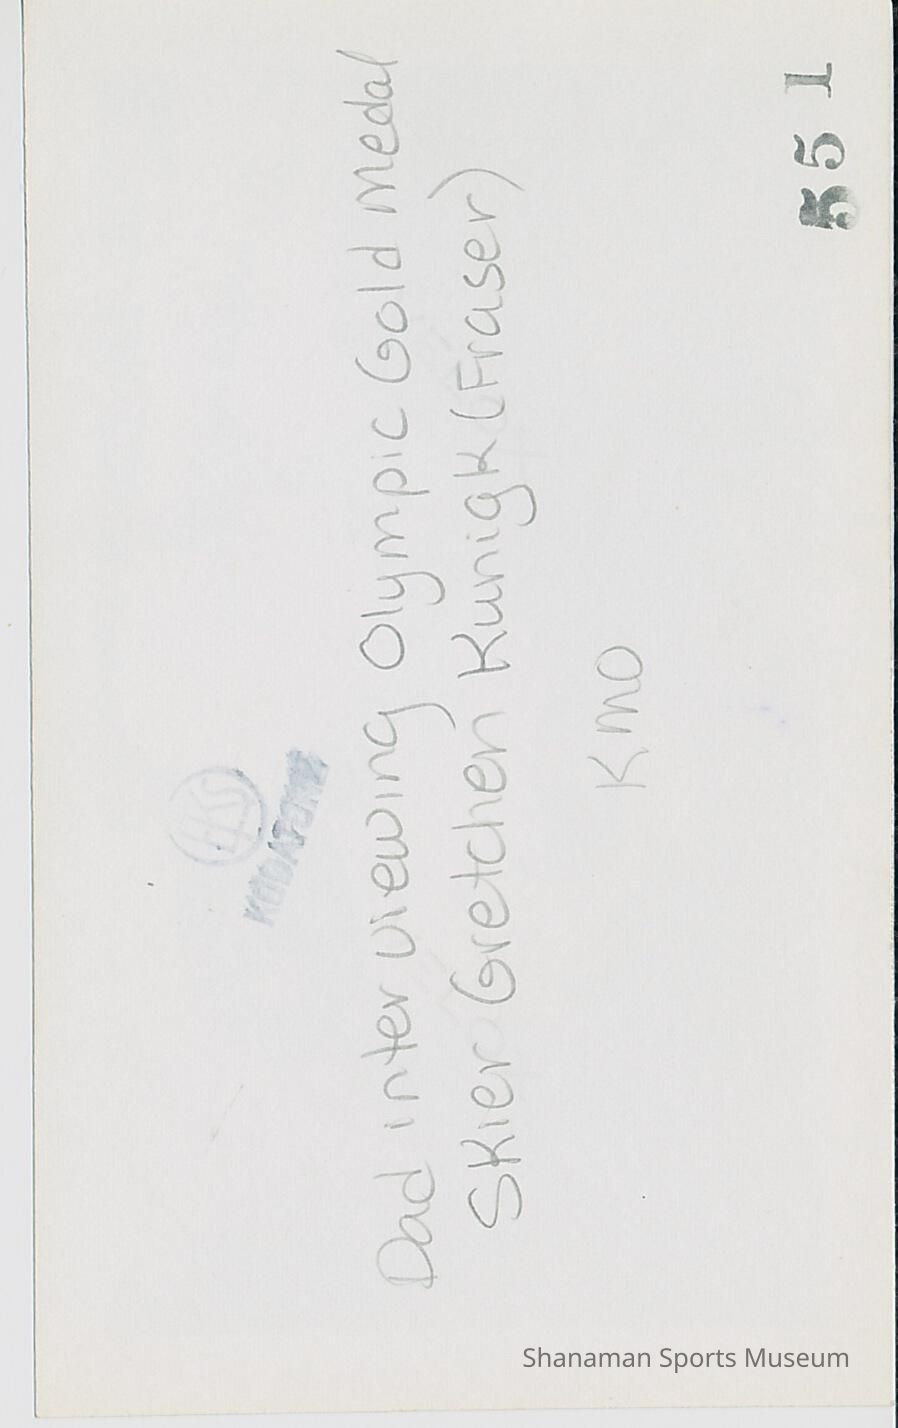 HKS
KODATONED
Dad interviewing Olympic Gold Medal
Skier Gretchen Kunigk (Fraser)
KMO
551
Shanaman Sports Museum